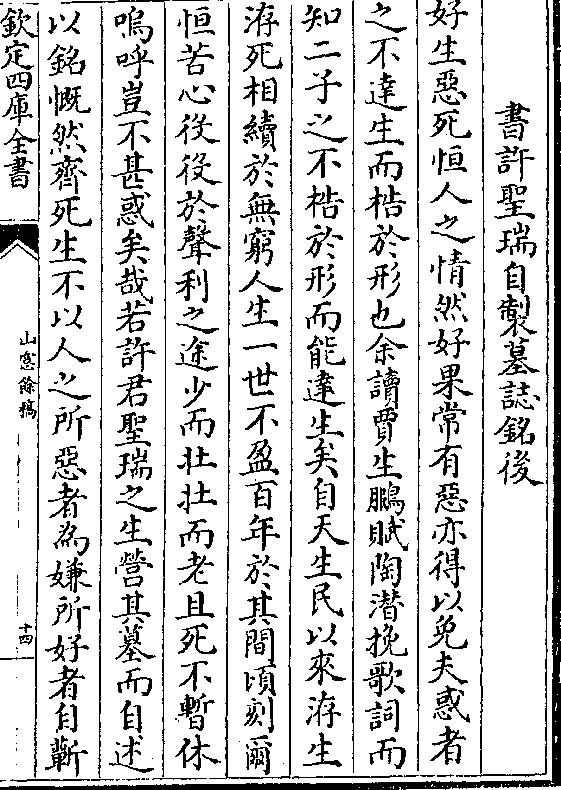 書許聖瑞自製墓誌銘後
好生惡死恒人之情然好果常有惡亦得以免夫惑者
之不達生而梏於形也余讀賈生鵩賦陶潛挽歌詞而
知二子之不梏於形而能達生矣自天生民以來洊生
洊死相續於無窮人生一世不盈百年於其間頃刻爾
恒苦心役役於聲利之途少而壯壯而老且死不暫休
嗚呼豈不甚惑矣哉若許君聖瑞之生營其墓而自述
以銘慨然齊死生不以人之所惡者為嫌所好者自蘄
欽定四庫全書
山窓餘稿
十四